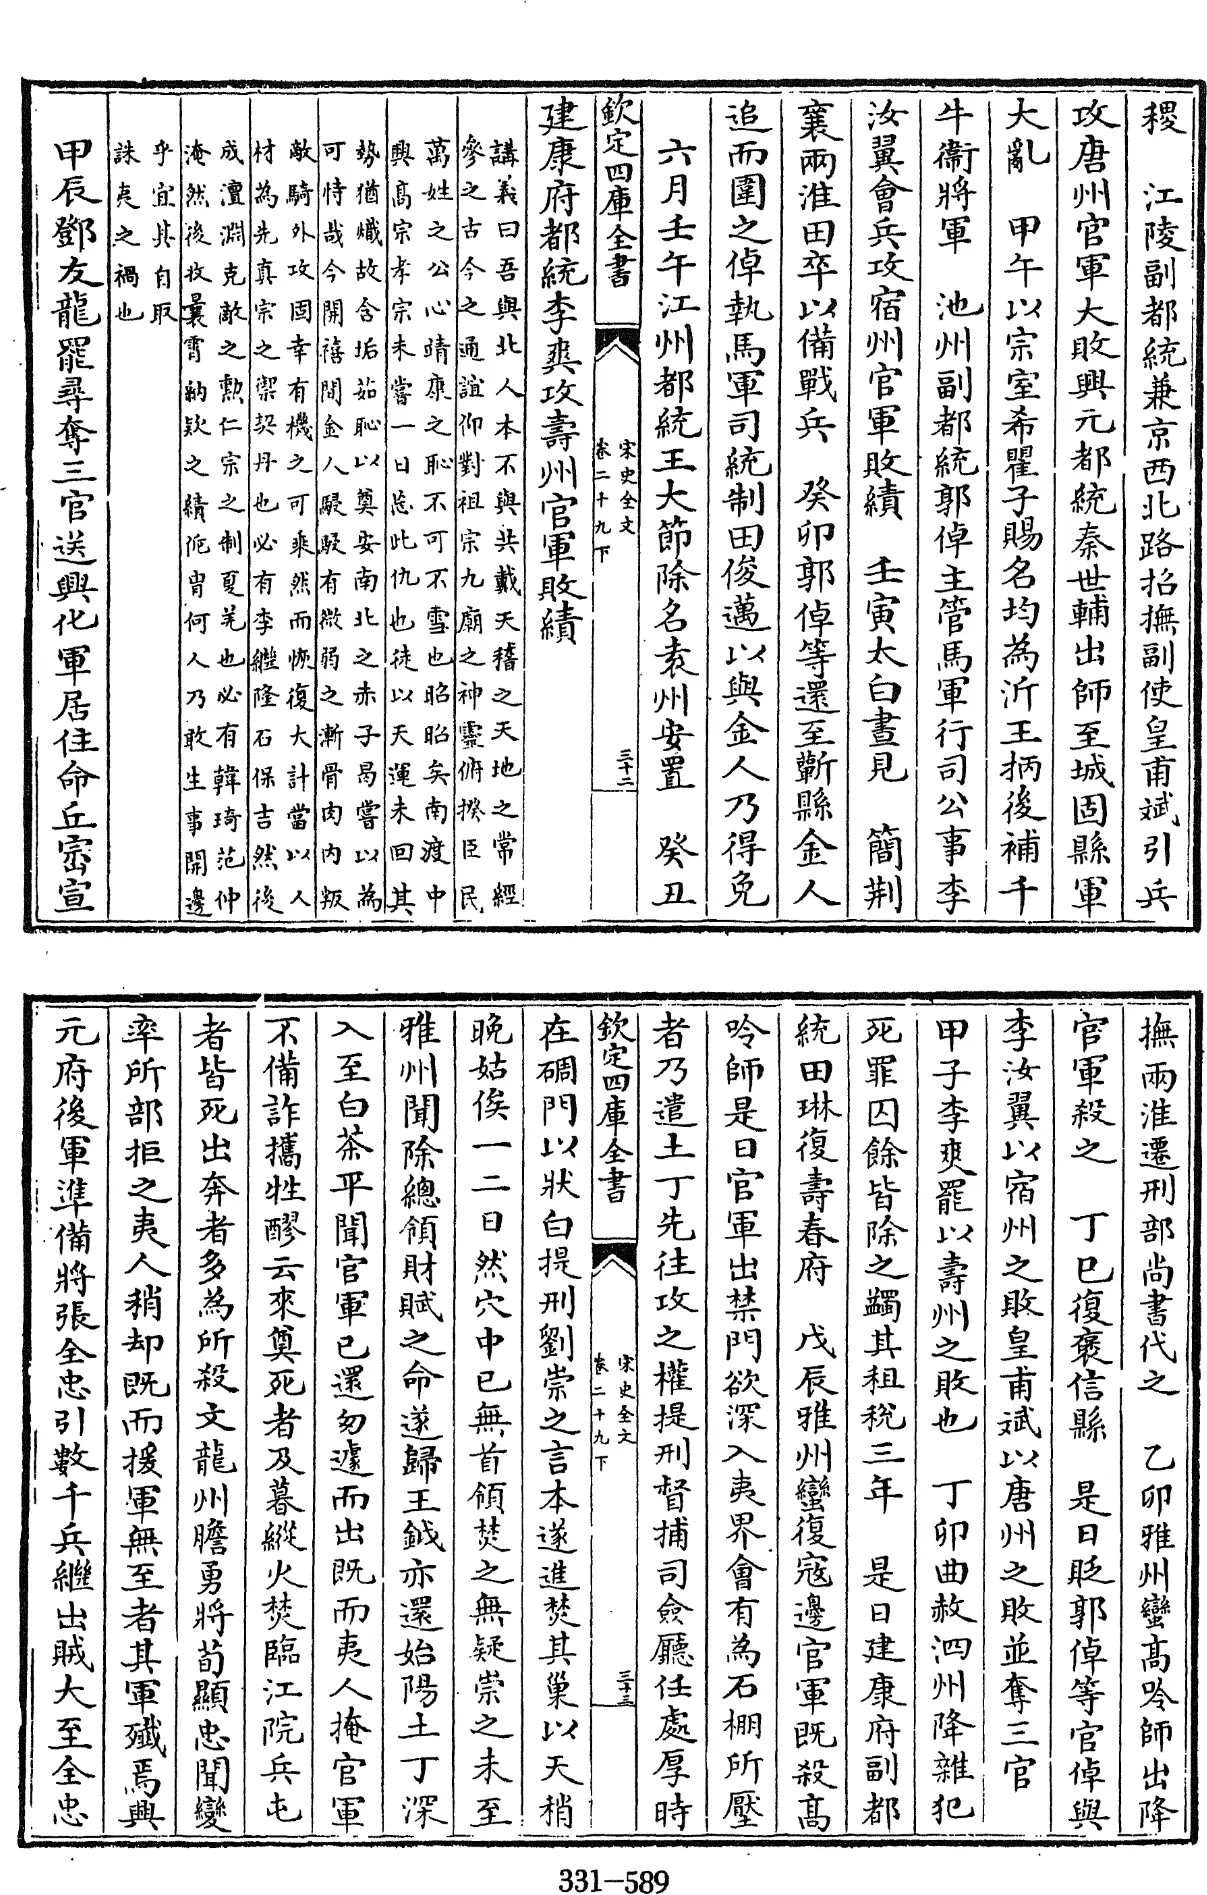 稷　江陵副都統兼京西北路招撫副使皇甫斌引兵
攻唐州官軍大敗興元都統秦世輔出師至城固縣軍
大亂　甲午以宗室希瞿子賜名均為沂王抦後補千
牛衞將軍　池州副都統郭倬主管馬軍行司公事李
汝翼會兵攻宿州官軍敗績　壬寅太白晝見　簡荆
襄兩淮田卒以備戰兵　癸卯郭倬等還至蘄縣金人
追而圍之倬執馬軍司統制田俊邁以與金人乃得免
六月壬午江州都統王大節除名袁州安置　癸丑
欽定四庫全書
宋史全文
卷二十九下
三十二
建康府都統李爽攻壽州官軍敗績
講義曰吾與北人本不與共戴天稽之天地之常經
參之古今之通誼仰對祖宗九廟之神靈俯揆臣民
萬姓之公心靖康之恥不可不雪也昭昭矣南渡中
興髙宗孝宗未嘗一日忘此仇也徒以天運未回其
勢猶熾故含垢茹恥以奠安南北之赤子曷嘗以為
可恃哉今開禧間金人駸駸有微弱之漸骨肉内叛
敵騎外攻固幸有機之可乘然而恢復大計當以人
材為先真宗之禦契丹也必有李繼隆石保吉然後
成澶淵克敵之勲仁宗之制夏羌也必有韓琦范仲
淹然後收曩霄納欵之績侂胄何人乃敢生事開邊
乎宜其自取
誅夷之禍也
甲辰鄧友龍罷尋奪三官送興化軍居住命丘崈宣
撫兩淮遷刑部尚書代之　乙卯雅州蠻髙吟師出降
官軍殺之　丁巳復褒信縣　是日貶郭倬等官倬與
李汝翼以宿州之敗皇甫斌以唐州之敗並奪三官
甲子李爽罷以壽州之敗也　丁卯曲赦泗州降雜犯
死罪囚餘皆除之蠲其租税三年　是日建康府副都
統田琳復壽春府　戊辰雅州蠻復寇邊官軍既殺髙
吟師是日官軍出禁門欲深入夷界會有為石棚所壓
者乃遣土丁先往攻之權提刑督捕司僉廳任處厚時
欽定四庫全書
宋史全文
卷二十九下
三十三
在碉門以狀白提刑劉崇之言本遂進焚其巢以天稍
晩姑俟一二日然穴中已無首領焚之無疑崇之未至
雅州聞除總領財賦之命遂歸王鉞亦還始陽土丁深
入至白茶平聞官軍已還匆遽而出既而夷人掩官軍
不備詐攜牲醪云來奠死者及暮縱火焚臨江院兵屯
者皆死出奔者多為所殺文龍州膽勇將茍顯忠聞變
率所部拒之夷人稍却既而援軍無至者其軍殲焉興
元府後軍準備將張全忠引數千兵繼出賊大至全忠
331-589